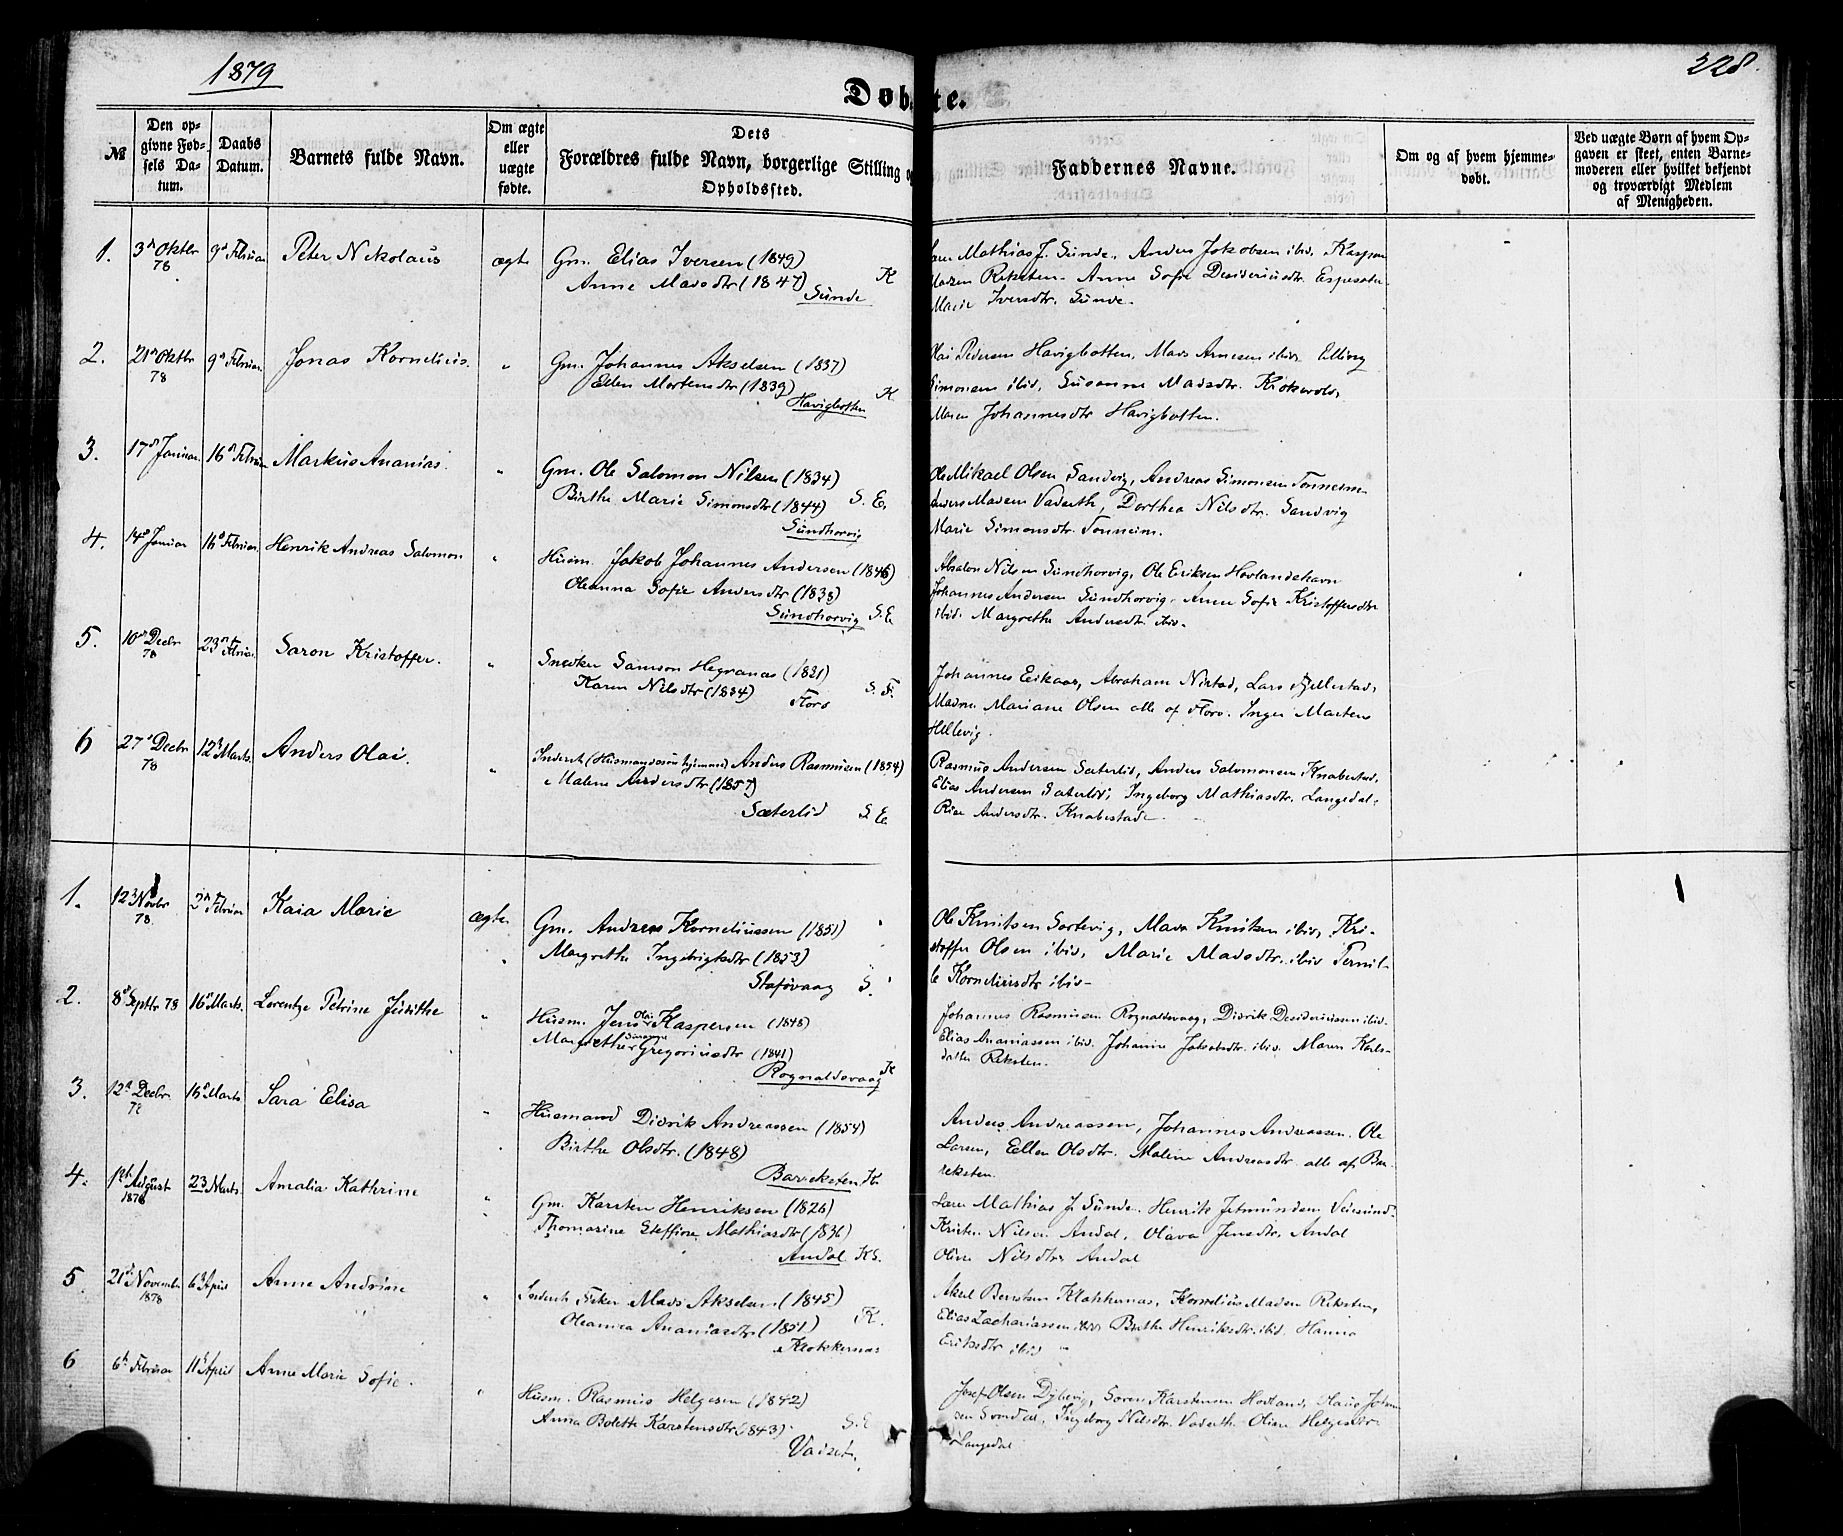 1879
228.
Døbte.
№
Den opgivne Fødsels Datum.
Daabs Datum.
Barnets fulde Navn.
Om ægte eller uægte fødte.
Dets Forældres fulde Navn, borgerlige Stilling og Opholdssted.
Faddernes Navne.
Om og af hvem hjemmedøbt.
Ved uægte Børn af hvem Opgaven er skeet, enten Barnemoderen eller hvilket bekjendt og troværdigt Medlem af Menigheden.
1. 3d Oktbr 78 9d Februar Peter Nikolaus ægte Gm. Elias Iversen (1849)
Anne Madsdtr (1847) K
Sunde
Mathias J. Sunde, Anders Jakobsen ibid. Kaspar
Madsen Reksten. Anne Sofie Desideriusdtr. Espesater
Marie Iversdtr. Sunde.
2. 21d Oktbr 78 9d Februar Jonas Kornelius. " Gm. Johannes Akselsen (1837)
Elen Mortensdtr (1839) K.
Havigbotten
Olai Pedersen Havigbotten, Mads Arnesen ibid. Elling
Simonsen ibid, Susanne Madsdtr.
Maren Johannesdtr Havigbotten.
3. 17d Januar 16d Februar Markus Ananias. " Gm. Ole Salomon Nilsen (1834)
Birthe Marie Simonsdtr (1844) S. E.
Sundhorvig
Ole Mikael Olsen Sandvig, Andreas Simonsen Tonneim
Anders Madsen Vaderth, Dorthea Nilsdtr. Sandvig
Marie Simonsdtr. Tonneim.
4. 14d Januar 16d Februar Henrik Andreas Salomon " Husm. Jakob Johannes Andersen (1846)
Oleanna Sofie Andersdtr (1838)
Sundhorvig S. E
Absalon Nilsen Sundhorvig, Ole Eriksen Hovlandshavn
Johannes Andersen Sundhorvig, Anne Sofie Kristoffersdtr
ibid. Margrethe Andersdtr ibid.
5. 10d Decbr 78 23d Februar Saron Kristoffer. " Snedker Samson Hegranas (1821)
Karen Nilsdtr (1834) S. F.
Floro
Johannes Eikaas, Abraham Nistad, Lars Fjellestad,
Madme Mariane Olsen alle af Floro. Inger Martens
Hellevig.
6 27d Decbr 78 12d Marts. Anders Olai. " Inderst (Husmandssøn hjemme) Anders Rasmusen (1854)
Malene Andersdtr (1857)
Sæterlid S. E.
Rasmus Andersen Sæterlid, Anders Salomonsen Knabestad,
Elias Andersen Sæterlid, Ingeborg Mathiasdtr. Langedal,
Andersdtr. Knabestad.
1. 12d Novbr 78 Februar Kaia Marie ægte Gm. Andreas Korneliussen (1851)
" Margrethe Ingebrigtsdtr (1853)
Stavøvaag S.
Ole Knutsen Sortevig, Mads Knutsen ibid, Kri-
stoffer Olsen ibid, Marie Madsdtr. ibid Pernil-
le Korneliusdtr ibid-
2. 8d Septbr 78 16d Marts. Lorentze Petrine Judithe " Husm. Jens Olai Kaspersen (1848)
Margrethe Gregoriusdtr (1841)
Rognaldsvaag K
Johannes Rasmusen Rognaldsvaag, Didrik Desideriussen ibid.
Elias Ananiassen ibid. Johanne Jakobsdtr. ibid. Maren Karls-
datter Reksten.
3. 12d Decbr 78 16d Marts Sara Elisa " Husmand Didrik Andreassen (1854)
Birthe Olsdtr. (1848)
Bareksten. K.
Anders Andreassen, Johannes Andreassen. Ole
Larsen, Ellen Olsdtr. Malene Andreasdtr. alle af Ba-
reksten.
4. August 1878 23 Marts. Amalia Kathrine " Gm. Karsten Henriksen (1826)
" Thomasine Steffine Mathiasdtr (1836)
Andal KS.
Mathias J. Sunde. Henrik Jetmundsen Veisund
Kristen Nilsen Andal. Olava Jensdtr. Andal
Oline Nilsdtr Andal
5 21d Novembr 1878 6d April Anne Andrine " Inderst Fisker Mads Akselsen (1845)
Oleanna Ananiasdtr (1851) K.
Klokkernas
Aksel Berntsen Klokkernas, Kornelius Madsen Reksten,
Elias Zachariassen ibid. Birthe Henriksdtr. ibid. Hanna
Eriksdtr ibid
6 6d Februar 11d April Anne Marie Sofie. " Husm. Rasmus Helgesen (1842)
Anna Bolette Karstensdtr (1843). S. E
Vadset.
Josef Olsen Dybevig, Søren Karstensen Hovland,
Ingeborg Nilsdtr. Vaderth Oline Helgesdtr.
Langedal